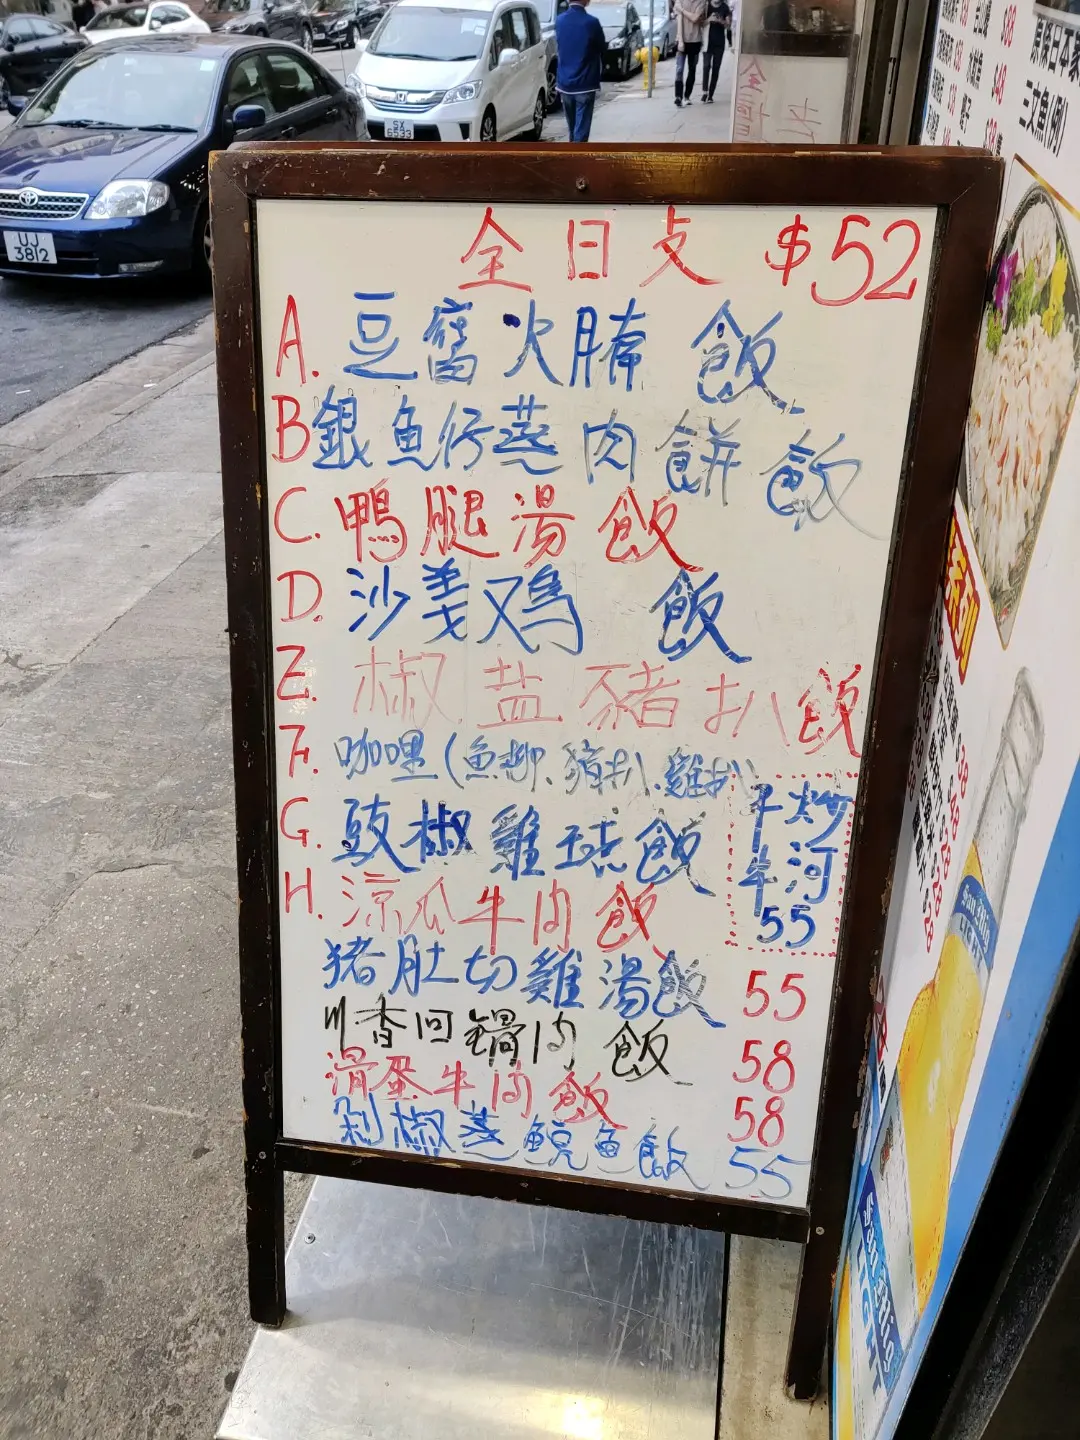 全日支 $52
A. 豆腐火腩飯
B 銀魚仔蒸肉餅飯
C. 鴨腿湯飯
D. 沙姜鸡飯
E. 椒盐豬扒飯
F. 咖喱(魚柳、豬扒、雞扒)
G. 豉椒雞球飯
干炒牛河 55
H. 涼瓜牛肉飯
猪肚切雞湯飯 55
川香回鍋肉飯 58
滑蛋牛肉飯 58
剁椒蒸鯇魚飯 55
UJ 3812
SX 6533
三文魚(例)
$88
$48
系列
San Mig
LIGHT